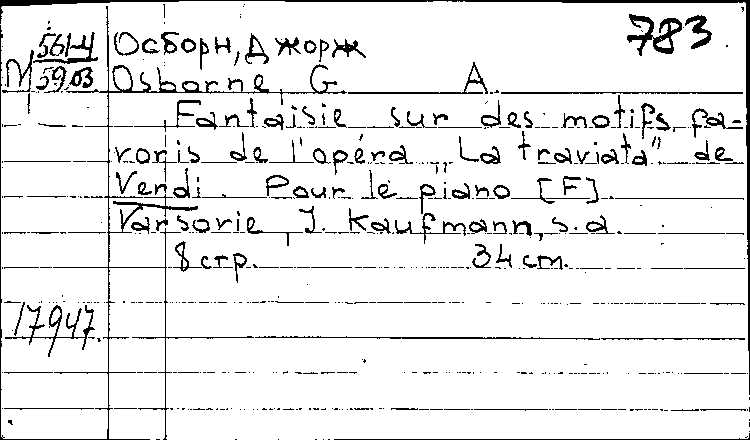 783
М 561-4
5903
Осборн, Джорж
Osborne, G. A.
Fantaisie sur des motifs fa-
voris de l'opéra „La traviata" de
Verdi. Pour le piano [F].
Varsovie, J. Kaufmann, s.a.
8 стр. 34 cm.
17947.